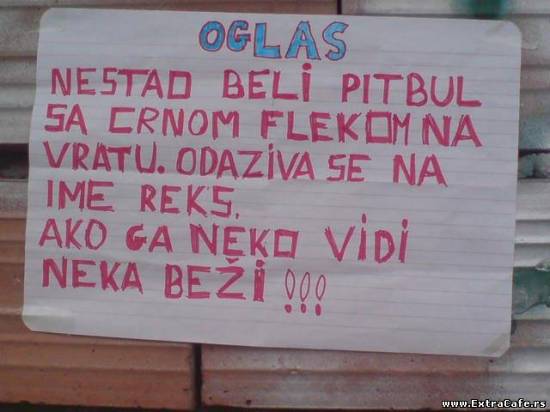 OGLAS
NESTAO BELI PITBUL
SA CRNOM FLEKOM NA
VRATU. ODAZIVA SE NA
IME REKS.
AKO GA NEKO VIDI
NEKA BEŽI !!!
www.ExtraCafe.rs